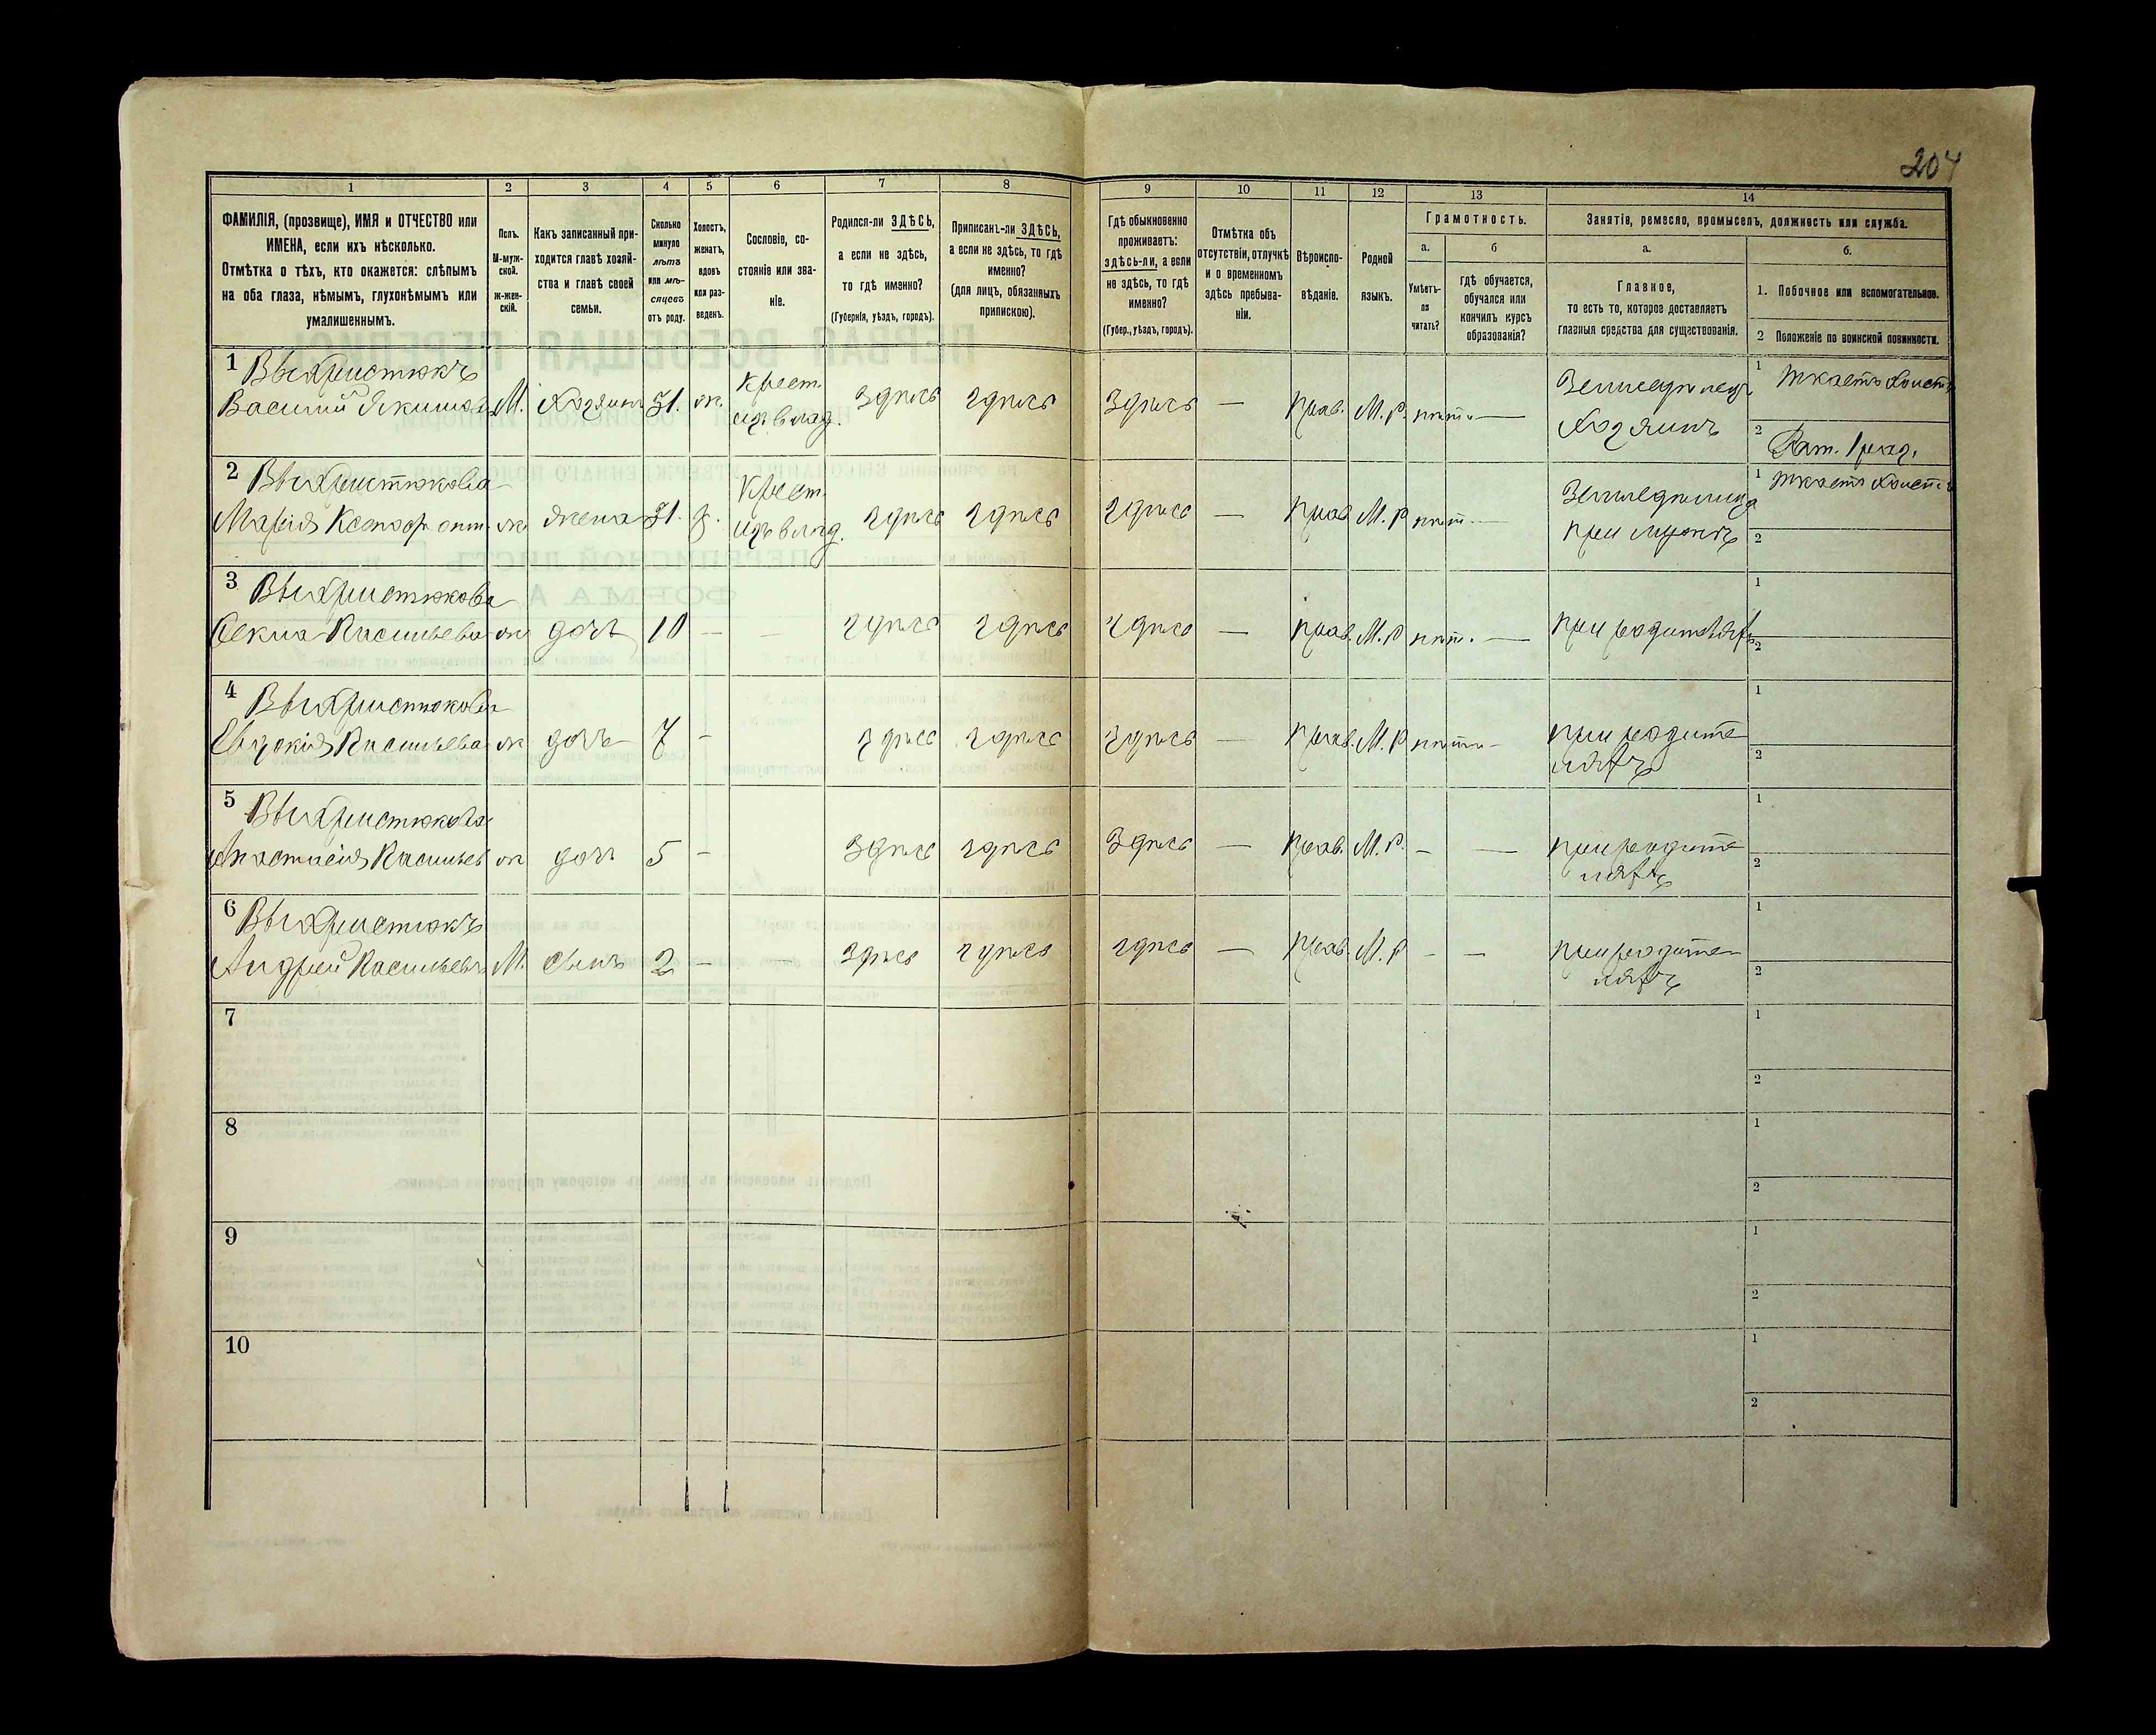 204
1 2 3 4 5 6 7 8 9 10 11 12 13 14
ФАМИЛІЯ, (прозвище), ИМЯ и ОТЧЕСТВО или
ИМЕНА, если ихъ нѣсколько.
Отмѣтка о тѣхъ, кто окажется: слѣпымъ
на оба глаза, нѣмымъ, глухонѣмымъ или
умалишеннымъ.
Полъ.
М-муж-
ской.
ж-жен-
скій.
Какъ записанный при-
ходится главѣ хозяй-
ства и главѣ своей
семьи.
Сколько
минуло
лѣтъ
или мѣ-
сяцевъ
отъ роду.
Холостъ,
женатъ,
вдовъ
или раз-
веденъ.
Сословіе, со-
стояніе или зва-
ніе.
Родился-ли ЗДѢСЬ,
а если не здѣсь,
то гдѣ именно?
(Губернія, уѣздъ, городъ).
Приписанъ-ли ЗДѢСЬ,
а если не здѣсь, то гдѣ
именно?
(для лицъ, обязанныхъ
припискою).
Гдѣ обыкновенно
проживаетъ:
здѣсь-ли, а если
не здѣсь, то гдѣ
именно?
(Губер., уѣздъ, городъ).
Отмѣтка объ
отсутствіи, отлучкѣ
и о временномъ
здѣсь пребыва-
ніи.
Вѣроиспо-
вѣданіе.
Родной
языкъ.
Грамотность.
а.
Умѣетъ-
ли
читать?
б
гдѣ обучается,
обучался или
кончилъ курсъ
образованія?
Занятіе, ремесло, промыселъ, должность или служба.
а.
Главное,
то есть то, которое доставляетъ
главныя средства для существованія.
б.
1. Побочное или вспомогательное.
2 Положеніе по воинской повинности.
1 Выхристюкъ
Василій Якимовъ М. Хозяинъ 31. ж. Крест. изъ влад. здѣсь здѣсь здѣсь — прав. М. р. нѣтъ —
Земледѣлецъ
Хозяинъ
1 ткаетъ холстъ
2 Рат. 1 раз.
2 Выхристюкова
Марія ж жена 31. з. Крест. изъ влад. здѣсь здѣсь здѣсь — прав М. р нѣт. —
Земледѣлица
при мужѣ
1 ткаетъ холстъ
2
3 Выхристюкова
Фекла Васильева ж дочь 10 — — здѣсь здѣсь здѣсь — прав. М. р нѣт. — при родителяхъ
1
2
4 Выхристюкова
Евдокія Васильева ж дочь 7 — здѣсь здѣсь здѣсь — прав. М. р нѣтъ —
при родите
ляхъ
1
2
5 Выхристюкова
Анастасія Васильев ж дочь 5 — здѣсь здѣсь здѣсь — прав. М. р. — —
при родите
ляхъ
1
2
6 Выхристюкъ
Андрей Васильевъ М. сынъ 2 — — здѣсь здѣсь здѣсь — прав. М. р — —
при родите
ляхъ
1
2
7
1
2
8
1
2
9
1
2
10
1
2